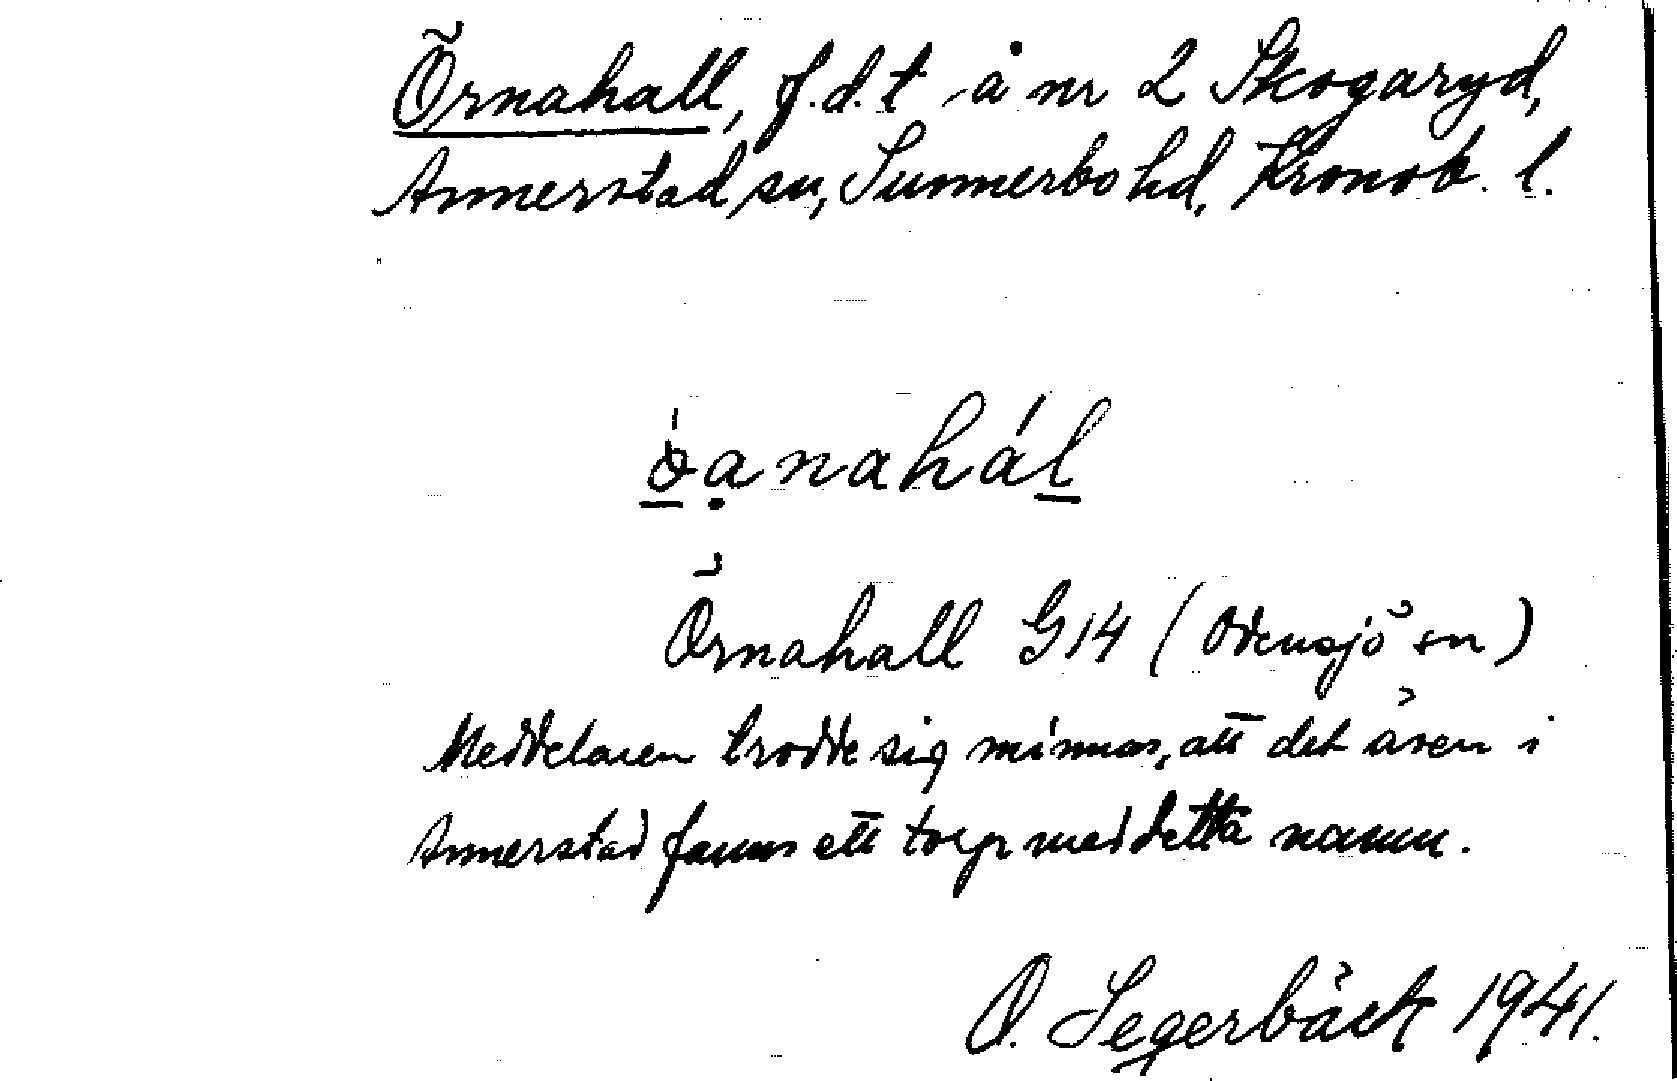 Örnahall, f.d. t å nr 2 Skogaryd,
Annerstad sn, Sunnerbo hd, Kronob. l.
ò̱ạnaháḻ
Örnahall G14 (Odensjö sn)
Meddelaren trodde sig minnas, att det även i
Annerstad fanns ett torp med detta namn.
O. Segerbäck 1941.